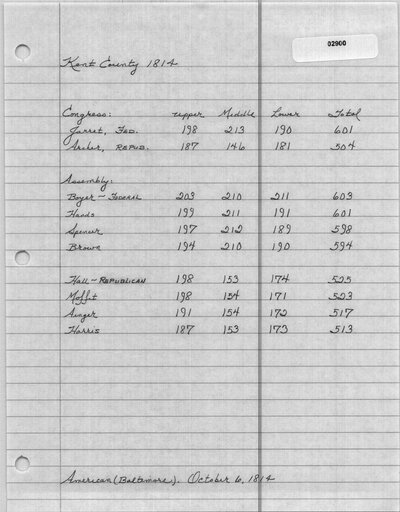 02900
Kent County 1814
Congress: Upper Middle Lower Total
FED. 198 213 190 601
Archer, REPUB. 187 146 181 504
Assembly:
Boyer - FEDERAL 203 210 211 603
Hands 199 211 191 601
Spencer 197 212 189 598
Browne 194 210 190 594
Hall - REPUBLICAN 198 153 174 525
Moffit 198 154 171 523
191 154 172 517
Harris 187 153 173 513
American (Baltimore). October 6, 1814